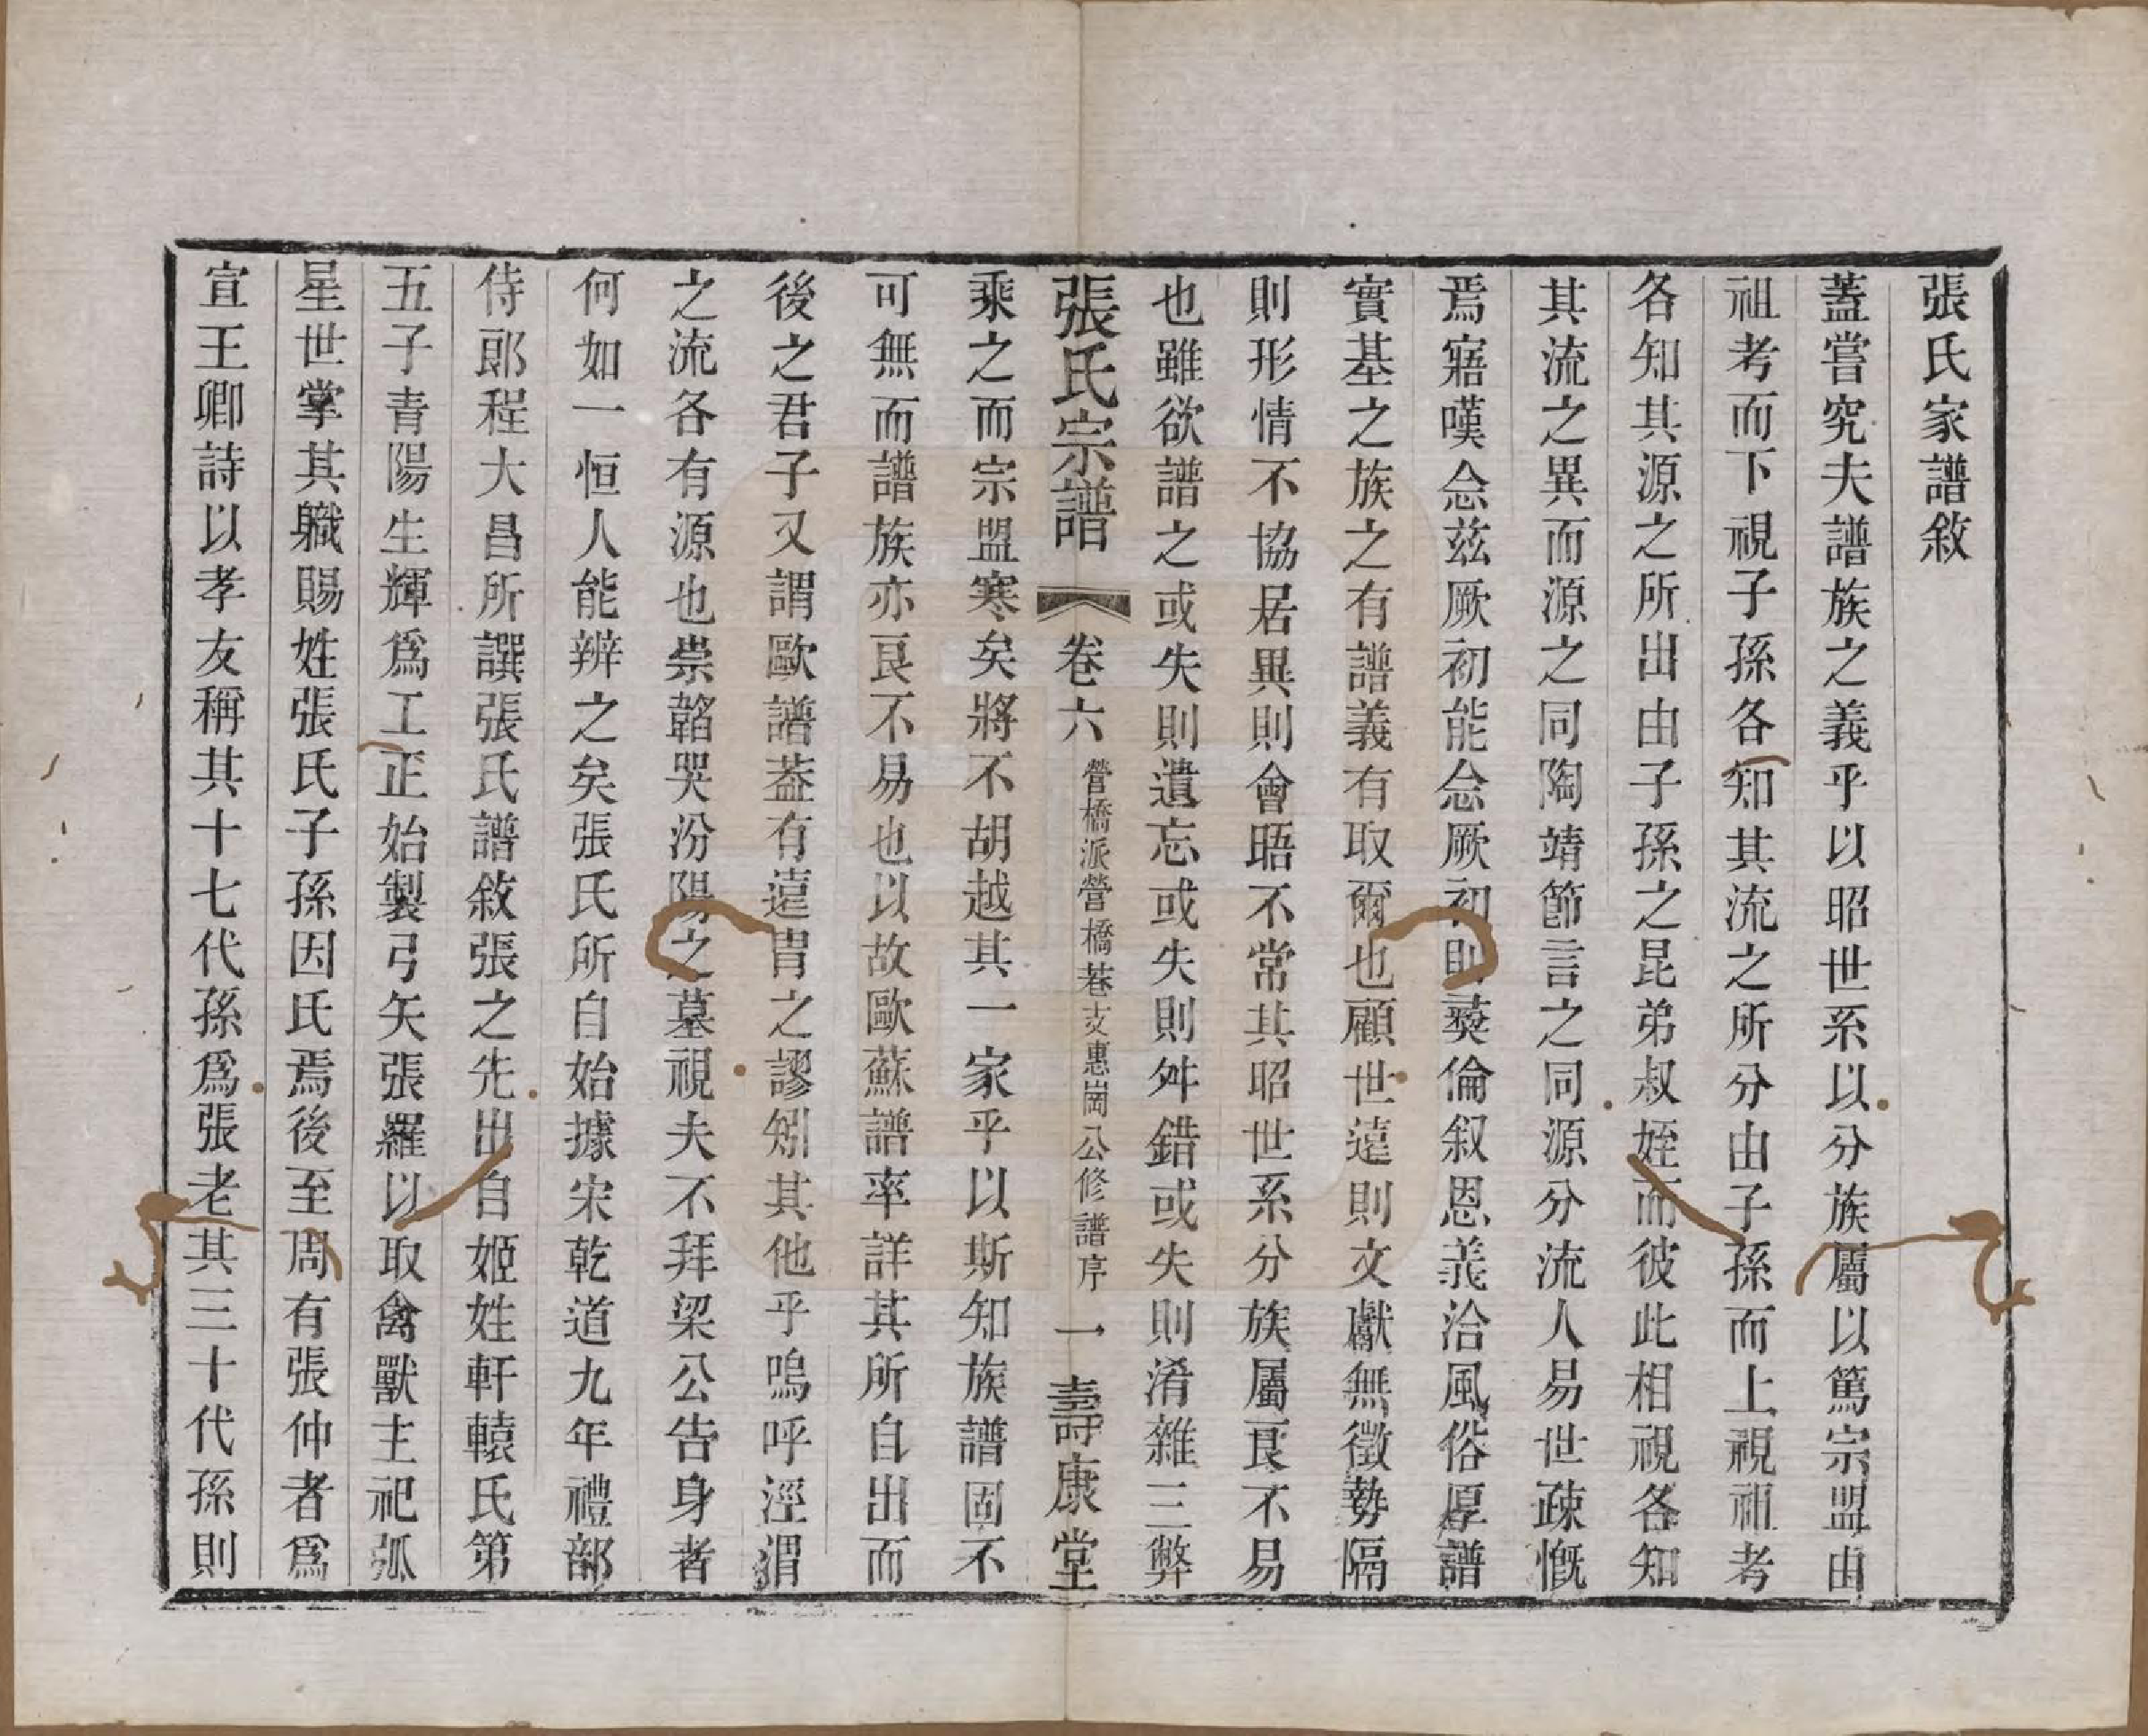 張氏家譜敘
蓋嘗究夫譜族之義乎以昭世系以分族屬以篤宗盟由
祖考而下視子孫各知其流之所分由子孫而上視祖考
各知其源之所出由子孫之昆弟叔姪而彼此相視各知
其流之異而源之同陶靖節言之同源分流人易世疎慨
焉寤嘆念茲厥初能念厥初則彝倫叙恩義洽風俗厚譜
實基之族之有譜義有取爾也顧世遠則文獻無徵勢隔
則形情不協居異則會晤不常其昭世系分族屬良不易
也雖欲譜之或失則遺忘或失則舛錯或失則淆雜三弊
張氏宗譜 卷六 營橋派營橋巷支惠崗公修譜序 一 壽康堂
乘之而宗盟寒矣將不胡越其一家乎以斯知族譜固不
可無而譜族亦良不易也以故歐蘇譜率詳其所自出而
後之君子又謂歐譜葢有遠胄之謬矧其他乎嗚呼涇渭
之流各有源也崇韜哭汾陽之墓視夫不拜梁公告身者
何如一恒人能辨之矣張氏所自始據宋乾道九年禮部
侍郎程大昌所譔張氏譜敘張之先出自姬姓軒轅氏第
五子青陽生輝爲工正始製弓矢張羅以取禽獸主祀弧
星世掌其職賜姓張氏子孫因氏焉後至周有張仲者爲
宣王卿詩以孝友稱其十七代孫爲張老其三十代孫則